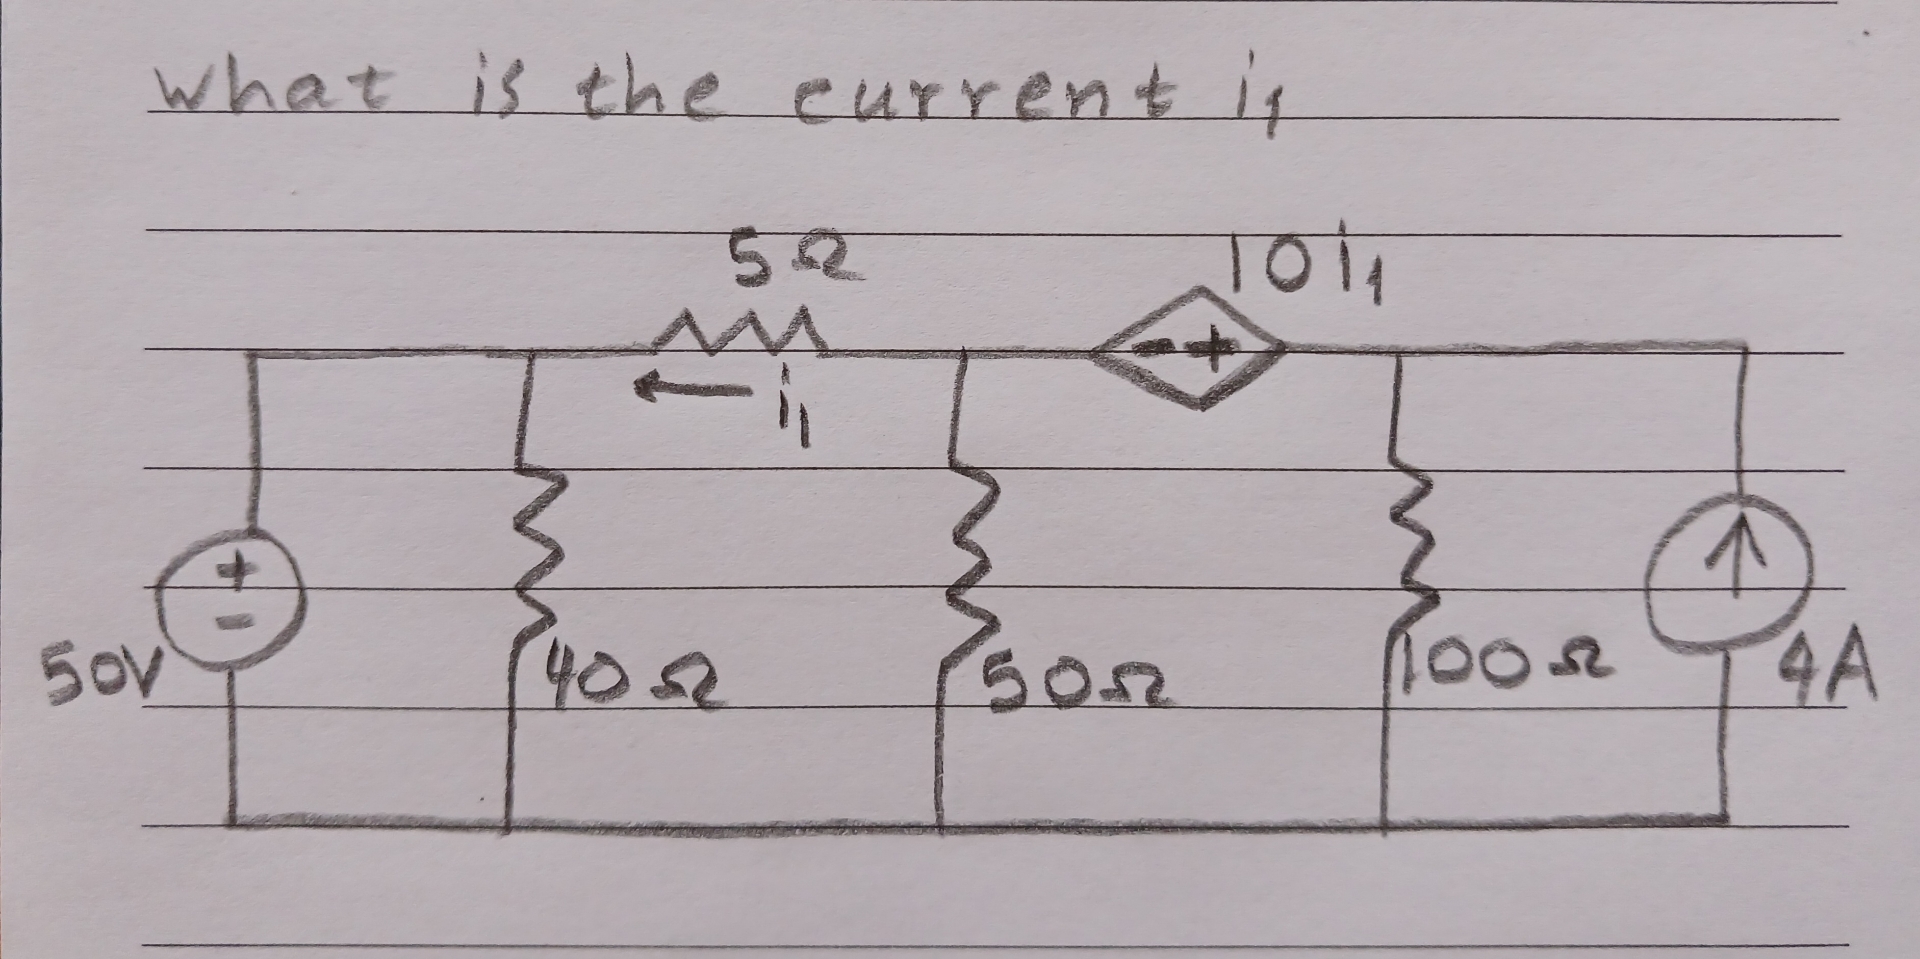 what is the current i1
5Ω
10i1
i1
+
-
- +
50V
40Ω
50Ω
100Ω
4A